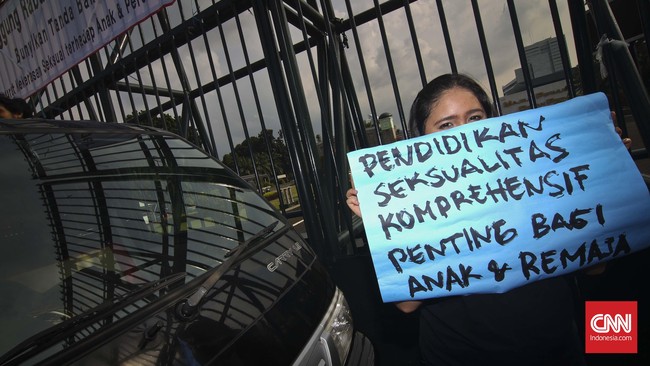 Bunyikan Tanda Ba
Seksual terhadap Anak &
PENDIDIKAN
SEKSUALITAS
KOMPREHENSIF
PENTING BAGI
ANAK & REMAJA
CNN
Indonesia.com